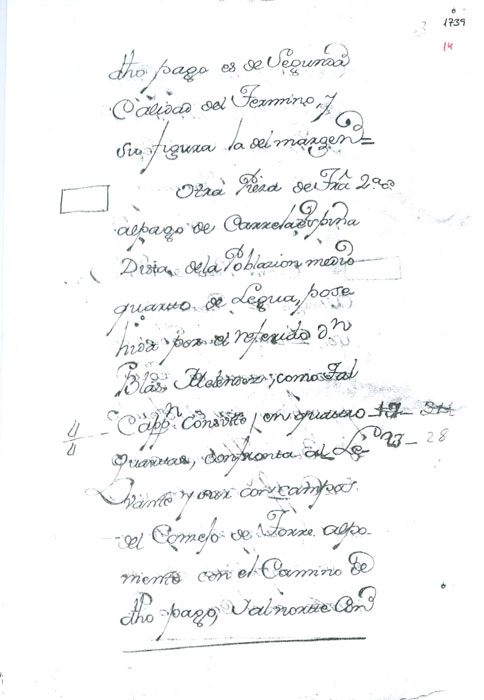 1739
14
dho pago es de Segunda
Calidad del Termino, y
su figura la del margen=
Otra Pieza de Trâ 2ª
al pago de Carrela
Dista de la Poblazion medio
quarto de Legua, pose
hida por el referido Dn
Blas como tal
4 Cappn en quatro 17
4 quartas, confronta al Le 23 - 28
vante y sur con campos
del Conzejo de Torre al po
niente con el Camino de
dho pago, y al norte Con